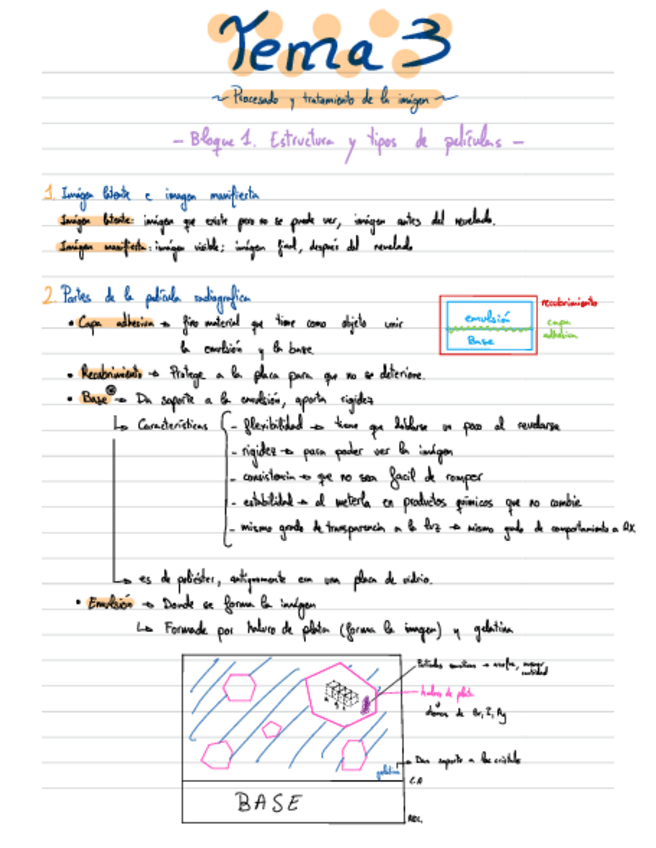 Tema 3
~ Procesado y tratamiento de la imágen ~
- Bloque 1. Estructura y tipos de películas -
1. Imágen latente e imagen manifiesta
Imágen latente: imágen que existe pero no se puede ver, imágen antes del revelado.
Imágen manifiesta: imágen visible; imágen final, después del revelado
2. Partes de la película radiografica
• Capa adhesiva → fino material que tiene como objeto unir
la emulsión y la base
emulsión
Base
recubrimiento
capa
adhesiva
• Recubrimiento → Protege a la placa para que no se deteriore.
• Base → Da soporte a la emulsión, aporta rigidez
↳ Características
- flexibilidad → tiene que doblarse un poco al revelarse
- rigidez → para poder ver la imágen
- consistencia → que no sea facil de romper
- estabilidad → al meterla en productos químicos que no cambie
- mismo grado de transparencia a la luz → mismo grado de comportamiento a RX
↳ es de poliéster, antiguamente era una placa de vidrio.
• Emulsión → Donde se forma la imágen
↳ Formada por haluro de plata (forma la imagen) y gelatina
Partículas sensitivas → azufre, mayor
cantidad
haluro de plata
átomos de Br, I, Ag
gelatina
→ Dan soporte a los cristales
C.A
BASE
REC.